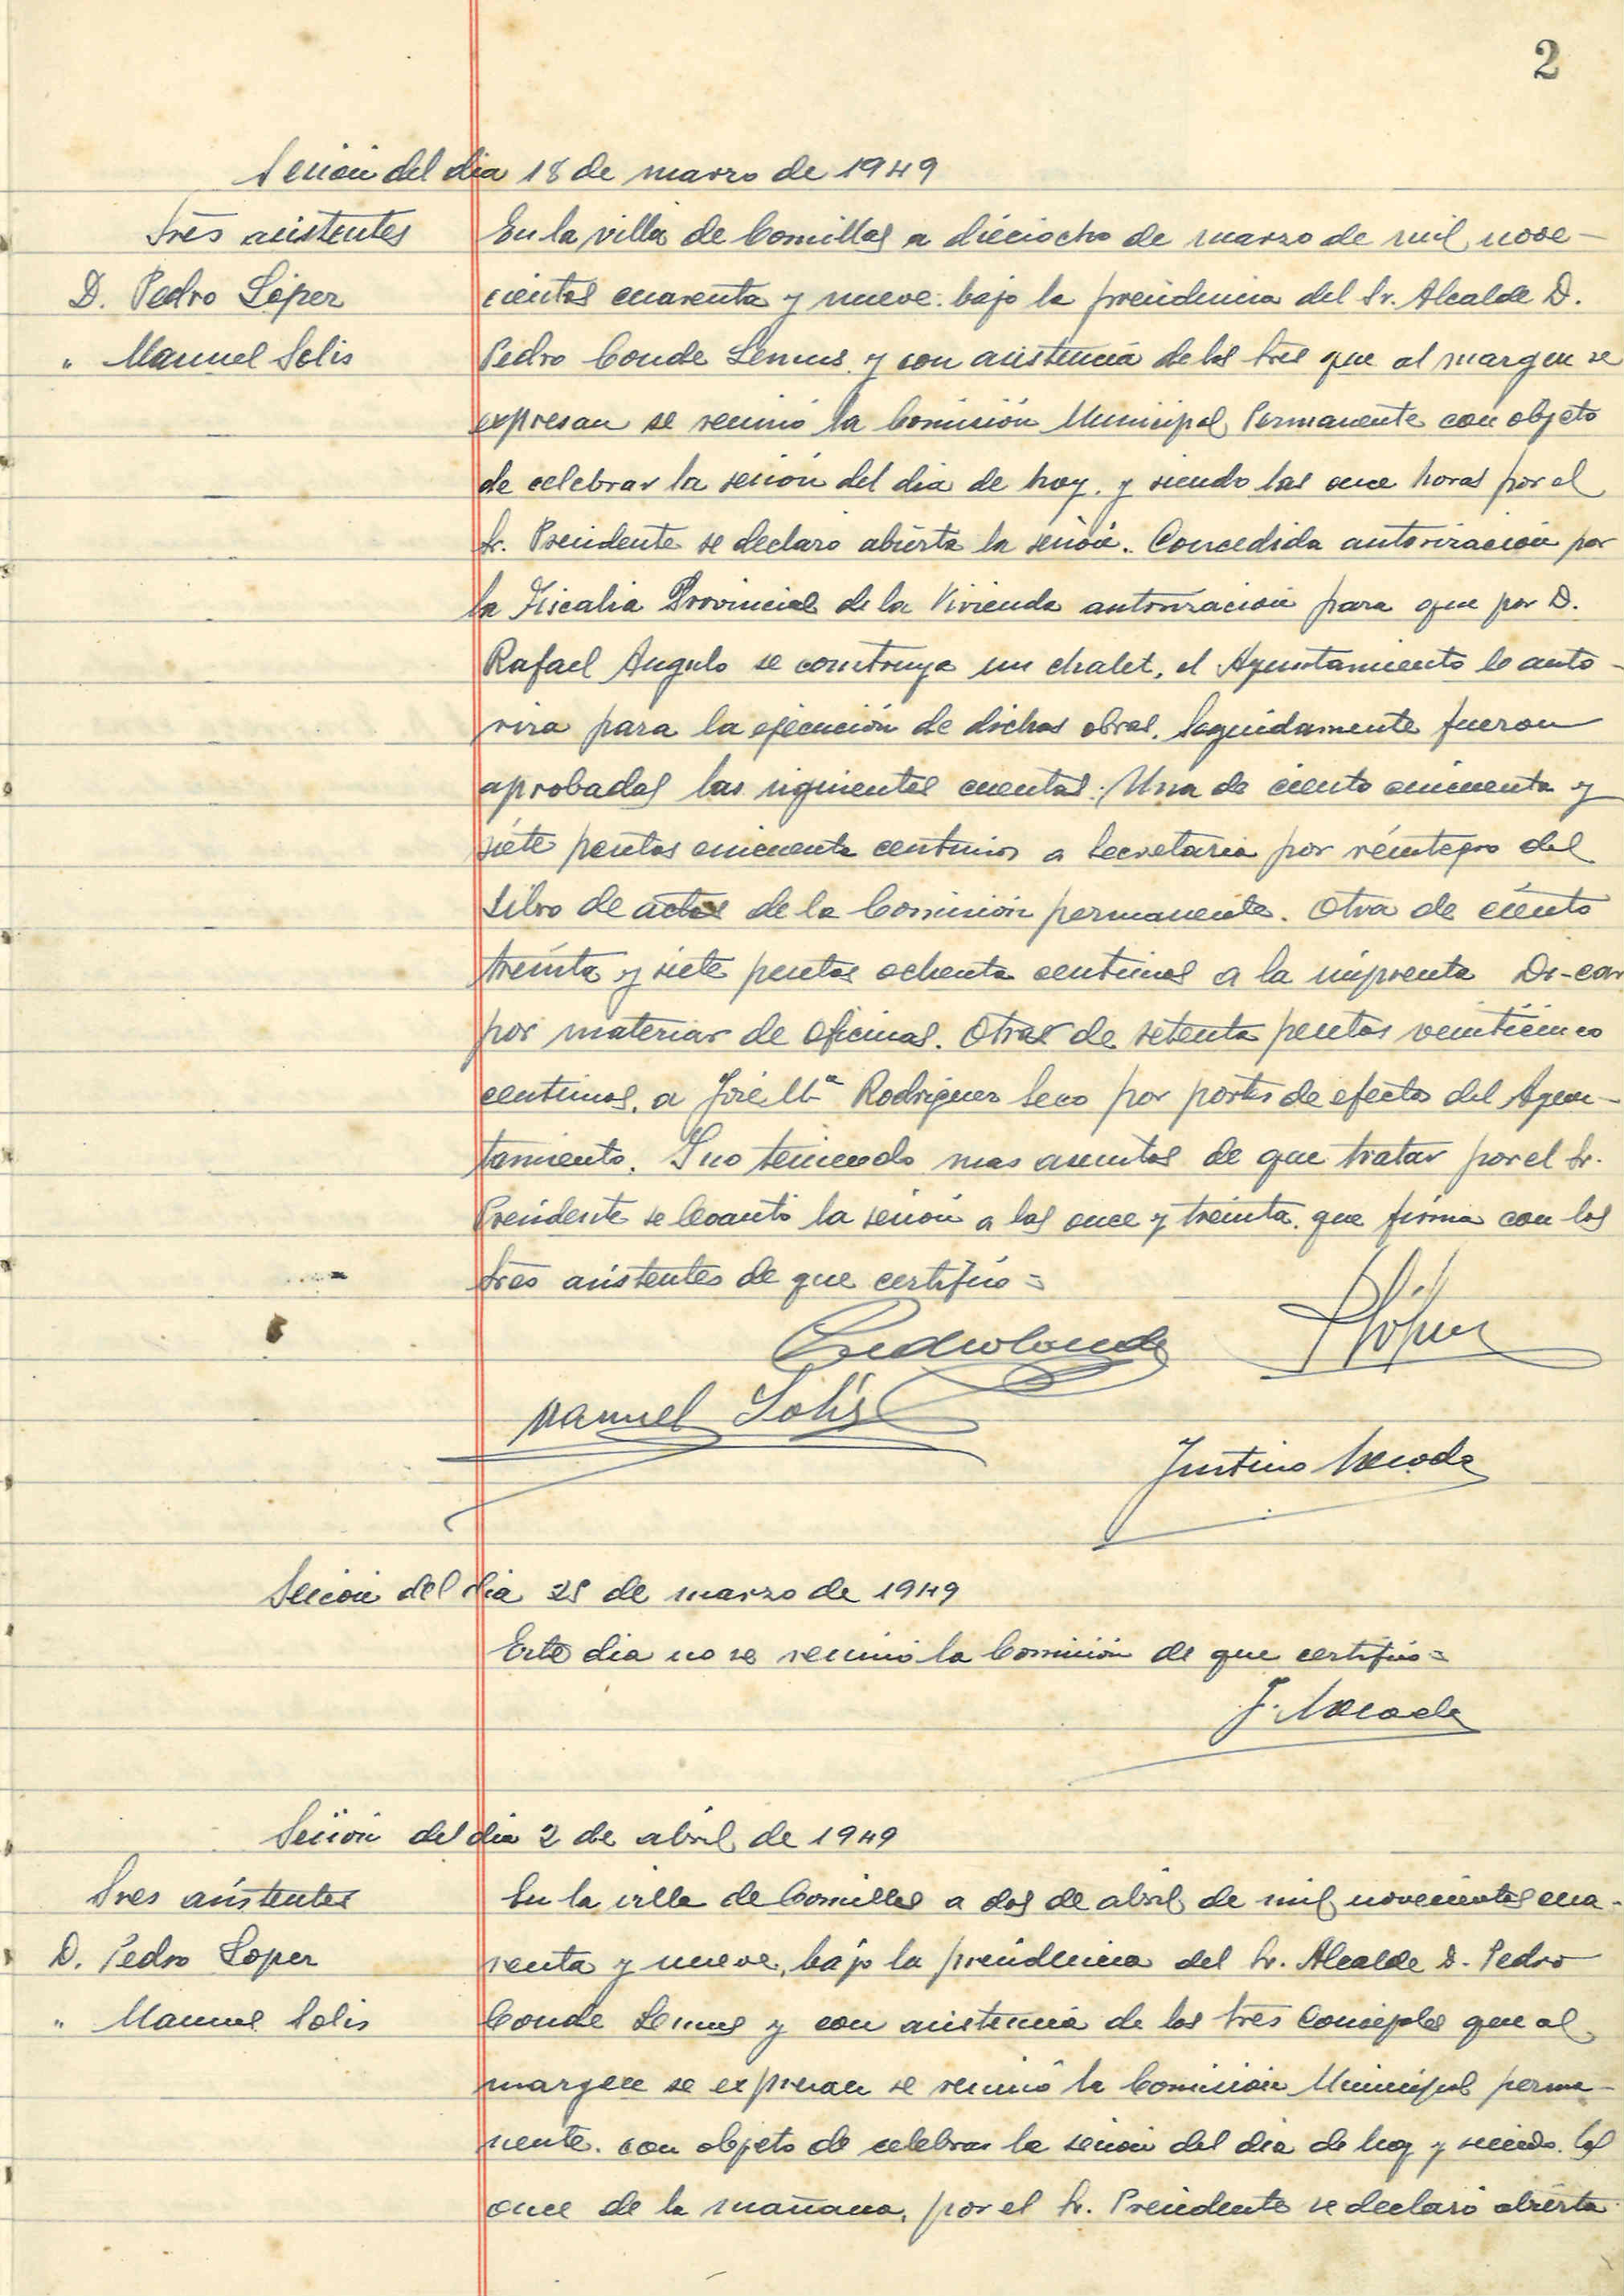 2
Sesión del dia 18 de marzo de 1949
Sres asistentes
D. Pedro López
" Manuel Solis
En la villa de Comillas a dieciocho de marzo de mil nove-
cientos cuarenta y nueve. bajo la presidencia del Sr. Alcalde D.
Pedro Conde Lemus y con asistencia de los Sres que al margen se
expresan se reunió la Comisión Municipal Permanente con objeto
de celebrar la sesión del dia de hoy. y siendo las once horas por el
Sr. Presidente se declaró abierta la sesión. Concedida autorización por
la Fiscalia Provincial de la Vivienda autorización para que por D.
Rafael Angulo se construya un chalet, el Ayuntamiento lo auto-
riza para la ejecución de dichas obras. Seguidamente fueron
aprobadas las siguientes cuentas: Una de ciento cincuenta y
siete pesetas cincuenta centimos a Secretaria por reintegro del
Libro de actas de la Comisión permanente. Otra de ciento
treinta y siete pesetas ochenta centimos a la imprenta Di-car
por materiar de oficinas. Otras de setenta pesetas veinticinco
centimos, a José Mª Rodriguez Seco por portes de efectos del Ayun-
tamiento. Y no teniendo mas asuntos de que tratar por el Sr.
Presidente se levantó la sesión a las once y treinta. que firma con los
Sres asistentes de que certifico =
Pedro Conde
P López
Manuel Solis
Justino
Sesión del dia 25 de marzo de 1949
Este dia no se reunió la Comisión de que certifico =
J.
Sesión del dia 2 de abril de 1949
Sres asistentes
D. Pedro Lopez
" Manuel Solis
En la villa de Comillas a dos de abril de mil novecientos cua-
renta y nueve, bajo la presidencia del Sr. Alcalde D. Pedro
Conde Lemus y con asistencia de los Sres Concejales que al
margen se expresan se reunió la Comisión Municipal perma-
nente. con objeto de celebrar la sesión del dia de hoy y siendo las
once de la mañana, por el Sr. Presidente se declaró abierta